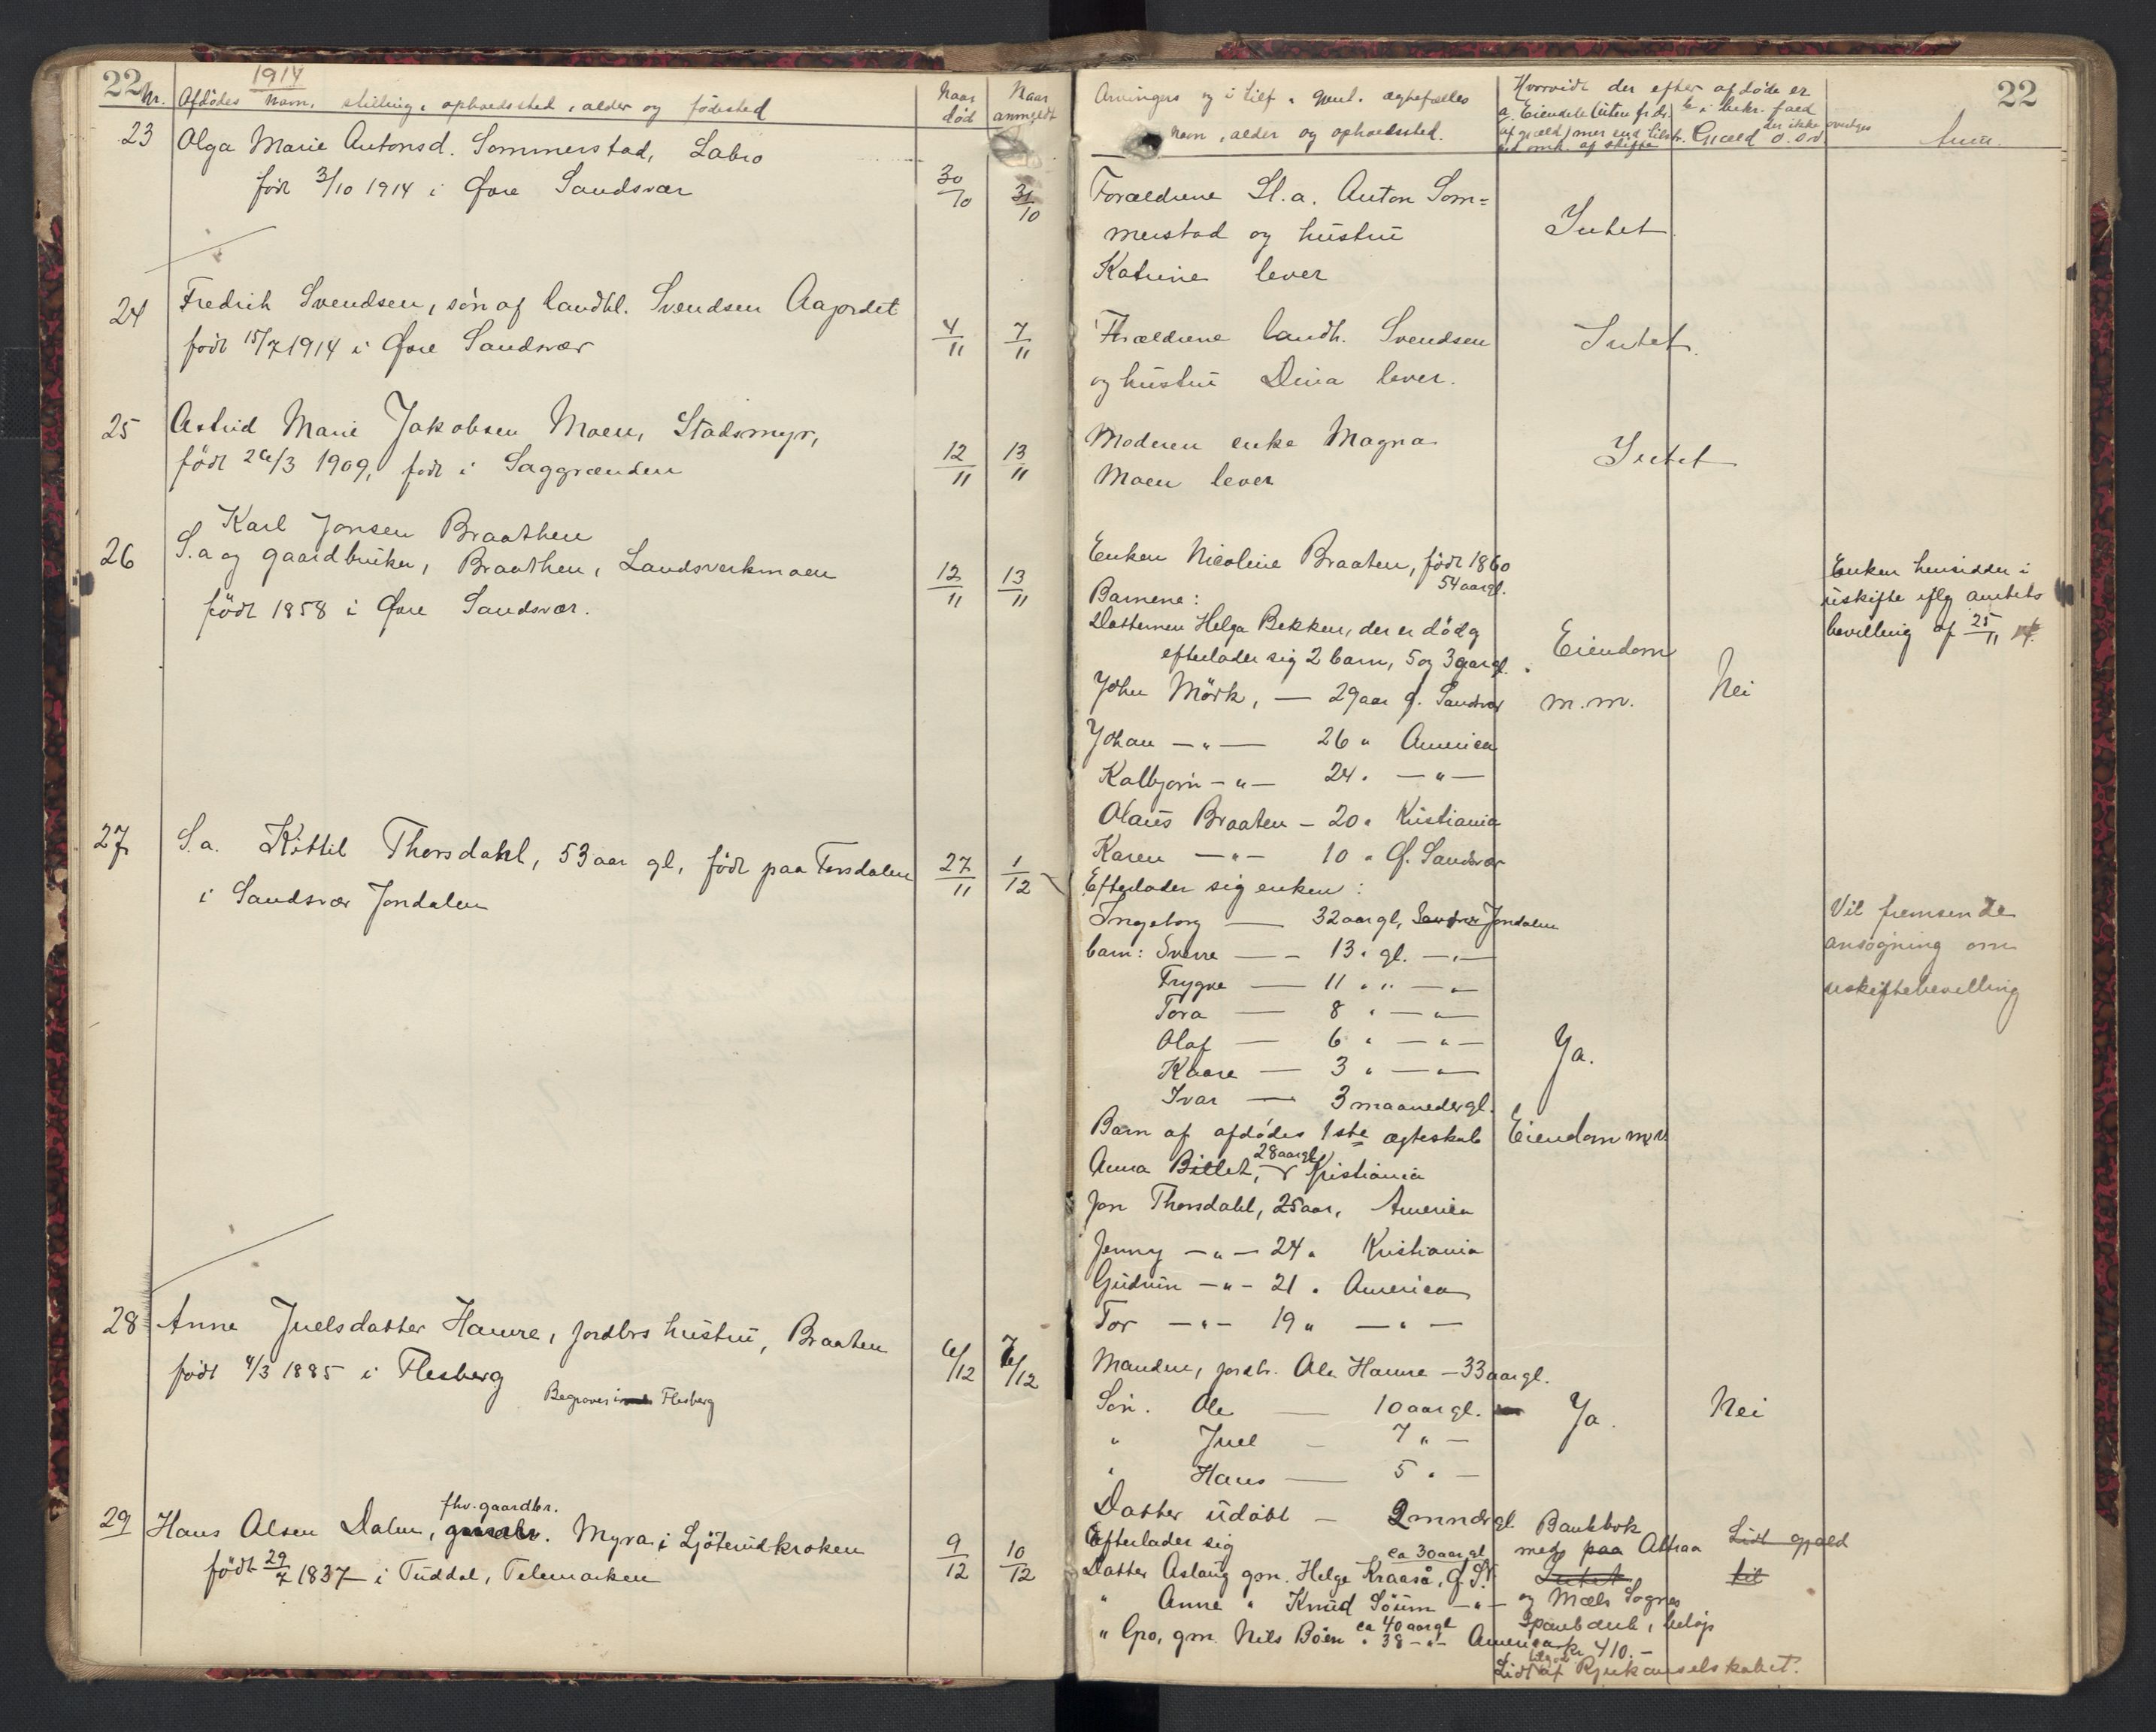 22
1914
Nr. Afdödes navn, stilling, opholdssted, alder og födested
Naar död
Naar anmeldt
23 Olga Marie Antonsd. Sommerstad, Labro
födt 3/10 1914 i Øvre Sandsvær
30/10 31/10
24 Fredrik Svendsen, sön af landhl. Svendsen Aajordet
födt 15/7 1914 i Øvre Sandsvær
4/11 7/11
25 Astrid Marie Jakobsen Moen, Stadsmyr,
födt 26/3 1909, födt i Saggrænden
12/11 13/11
Karl Jonsen Braathen
26 S.a og gaardbruker, Braathen, Landsverkmoen
födt 1858 i Øvre Sandsvær.
12/11 13/11
27 S.a. Kittil Thorsdahl, 53 aar gl, födt paa Torsdalen
i Sandsvær Jondalen
27/11 1/12
28 Anne Juelsdatter Haure, jordbrs hustru, Braaten
födt 4/3 1885 i Flesberg
Begraves i Flesberg
6/12 7/12
fhv. gaardbr.
29 Hans Olsen Dalen, gaardbr. Myra i Ljöterudkroken
födt 29/7 1837 i Tuddal, Telemarken
9/12 10/12
22
Arvingers og i tilf. gjenl. ægtefælles
navn, alder og opholdssted.
Hvorvidt der efter afdöde er
a. Eiendele (uten fradr.
af gjæld) mer end tilstr.
til omk. af skiftet
b. i bekr. fald
der ikke overtages
Gjæld o.s.v.
Anm.
Forældrene S.a. Anton Som=
merstad og hustru
Katrine lever
Intet
Forældrene landh. Svendsen
og hustru Dina lever.
Intet.
Moderen enke Magna
Moen lever
Intet
Enken Nicoline Braaten, födt 1860
54 aargl.
Barnene:
Datteren Helga Bekken, der er död og
efterlader sig 2 barn, 5 og 3 aar gl.
John Mörk, — 29 aar Ø. Sandsvær
Johan — " — 26 " America
Kolbjörn — " — 24 " — " —
Olaus Braaten — 20 " Kristiania
Karen — " — 10 " Ø. Sandsvær
Eiendom
m.m.
Nei
Enken hensidder i
uskifte iflg amtets
bevilling af 25/11 14.
Efterlader sig enken:
Ingeborg — 32 aar gl, Sandsv. Jondalen
barn: Sverre — 13 " gl. — " —
Trygve — 11 " " — " —
Tora — 8 " — " —
Olaf — 6 " — " —
Kaare — 3 " — " —
Ivar — 3 maaneder gl.
Barn af afdödes 1ste ægteskab
28 aar gl
Anna Billet, Kristiania
Jon Thorsdahl, 25 aar, America
Jenny — " — 24 " Kristiania
Gudrun — " — 21 " America
Tor — " — 19 " — " —
Ja.
Eiendom m.v.
Vil fremsende
ansøgning om
uskiftebevilling
Manden, jordbr. Ole Haure — 33 aar gl.
Sön. Ole — 10 aar gl.
" Juel — 7 " —
" Hans — 5 " —
Datter udöbt — 2 mndr gl.
Ja.
Nei
Efterlader sig
ca 30 aar gl
Datter Aslaug gm. Helge Kraasa, Ø. S.
" Anne " Knud Söum — " —
ca 40 aar gl
" Gro, gm. Nils Böen " 38 — " — America
Bankbok
med paa Attraa
Intet
og Mæls Sogns
Sparebank, belöp
kr 410.-
Lidt af Rjukanselskabet.
Lidt gjæld
til